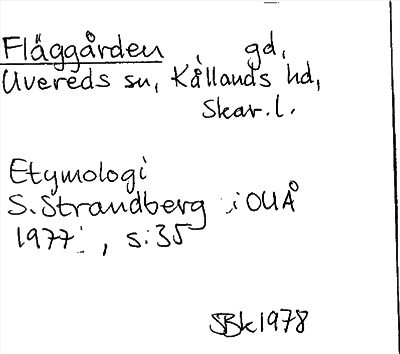 Fläggården, gd,
Uvereds sn, Kållands hd,
Skar. l.
Etymologi
S. Strandberg i OUÅ
1977, s. 35
SBk 1978